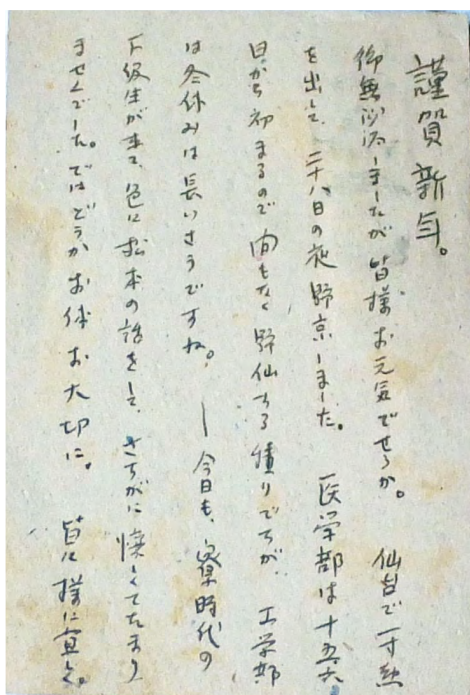 謹賀新年。
御無沙汰しましたが皆様お元気でせうか。 仙台で一寸熱
を出して、二十八日の夜帰京しました。 医学部は十五六
日から初まるので間もなく帰仙する積りですが、 工学部
は冬休みは長いさうですね。 ― 今日も、寮時代の
下級生が来て、色々松本の話をして、さすがに懐しくてたまり
ませんでした。ではどうかお体お大切に。 皆々様に宜しく。